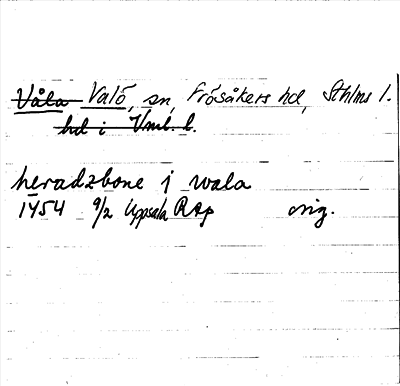 Våla Valö, sn, Frösåkers hd, Sthlms l.
hd i Vml. l.
heradzbone j wala
1454 9/2 Uppsala RAp orig.